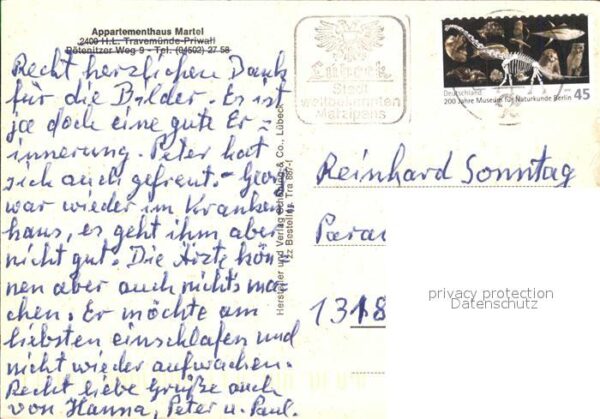 Appartementhaus Martel
2400 H.L. Travemünde-Priwall
Pötenitzer Weg 9 - Tel. (04502) 27 58
Recht herzlichen Dank
für die Bilder. Es ist
ja doch eine gute Er=
innerung. Peter hat
sich auch gefreut. - Georg
war wieder im Kranken
haus, es geht ihm aber
nicht gut. Die Ärzte kön
nen aber auch nichts ma
chen. Er möchte am
liebsten einschlafen und
nicht wieder aufwachen.
Recht liebe Grüße auch
von Hanna, Peter u. Paul.
Hersteller und Verlag & Co., Lübeck
Bestellnr. Tra 887-f
Lübeck
Stadt
weltbekannten
Marzipans
Deutschland
200 Jahre Museum für Naturkunde Berlin
45
Reinhard Sonntag
Para
1318
privacy protection
Datenschutz